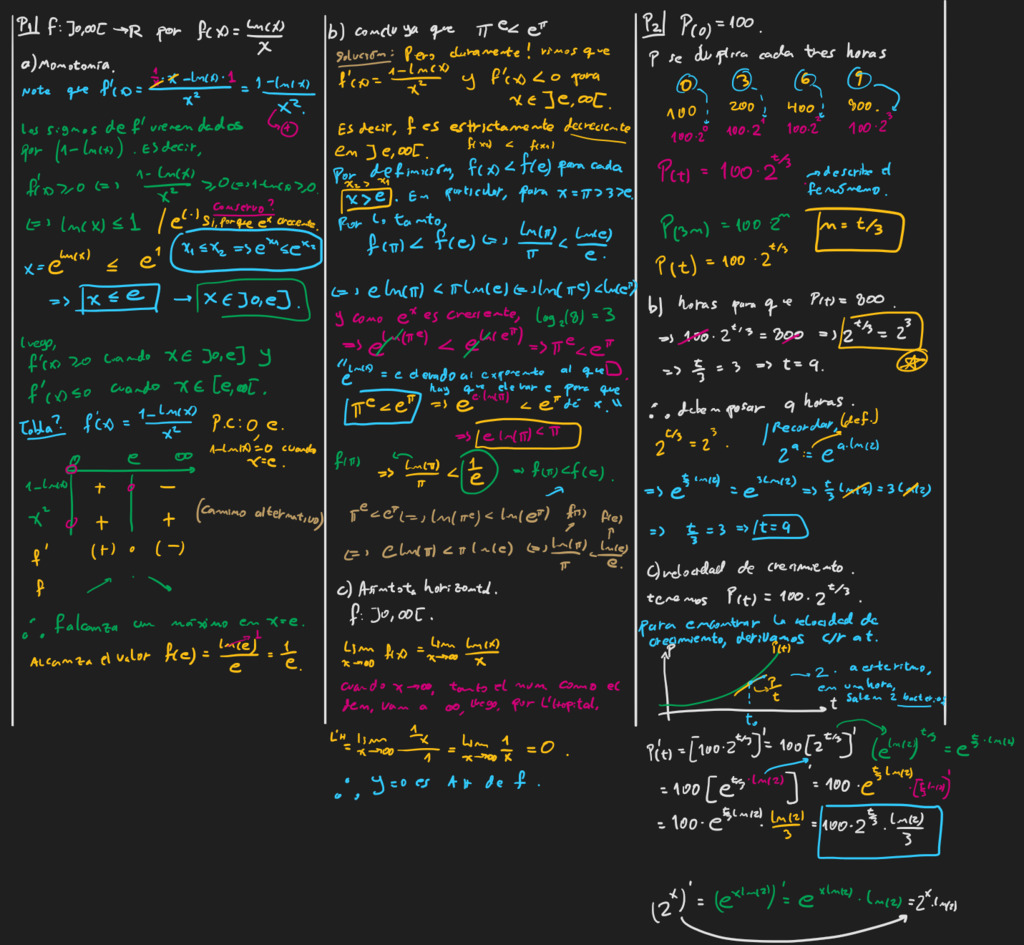 P1) f: ]0,∞[ → R por f(x) = ln(x)/x
a) Monotonía.
Note que f'(x) = (1/x · x − ln(x) · 1)/x² = (1 − ln(x))/x².
(+)
Los signos de f' vienen dados
por (1 − ln(x)). Es decir,
f'(x) ≥ 0 (=) (1 − ln(x))/x² ≥ 0 (=) 1 − ln(x) ≥ 0.
Conservo?
(=) ln(x) ≤ 1 / e^(·) Sí, porque e^x creciente.
x = e^ln(x) ≤ e^1
x₁ ≤ x₂ => e^x₁ ≤ e^x₂
=> x ≤ e → x ∈ ]0,e].
Luego,
f'(x) ≥ 0 cuando x ∈ ]0,e] y
f'(x) ≤ 0 cuando x ∈ [e,∞[.
Tabla? f'(x) = (1 − ln(x))/x² P.C: 0, e.
1 − ln(x) = 0 cuando
x = e.
0 e ∞
1 − ln(x) + −
x² + + (Camino alternativo)
f' (+) 0 (−)
f
∴, f alcanza un máximo en x = e.
Alcanza el valor f(e) = ln(e)/e = 1/e. 1
b) Concluya que π^e < e^π
Solución: Pero claramente! vimos que
f'(x) = (1 − ln(x))/x² y f'(x) < 0 para
x ∈ ]e,∞[.
Es decir, f es estrictamente decreciente
en ]e,∞[. f(x₂) < f(x₁)
Por definición, f(x) < f(e) para cada
x₂ > x₁
x > e. En particular, para x = π > 3 > e.
Por lo tanto,
f(π) < f(e) (=) ln(π)/π < ln(e)/e.
(=) e ln(π) < π ln(e) (=) ln(π^e) < ln(e^π)
y como e^x es creciente, log₂(8) = 3
=> e^ln(π^e) < e^ln(e^π) => π^e < e^π
"e^ln(x) = e elevado al exponente al que
hay que elevar e para que
dé x."
π^e < e^π => e^(e·ln(π)) < e^π
=> e ln(π) < π
f(π) => ln(π)/π < 1/e => f(π) < f(e).
π^e < e^π (=) ln(π^e) < ln(e^π) f(π) f(e)
(=) e ln(π) < π ln(e) (=) ln(π)/π < ln(e)/e.
c) Asíntota horizontal.
f: ]0,∞[.
Lim x→∞ f(x) = Lim x→∞ ln(x)/x
Cuando x→∞, tanto el num como el
den, van a ∞, luego, por L'Hopital,
L'H = Lim x→∞ (1/x)/1 = Lim x→∞ 1/x = 0.
∴, y = 0 es AH de f.
P2) P(0) = 100.
P se duplica cada tres horas
0 3 6 9
100 200 400 800.
100·2⁰ 100·2¹ 100·2² 100·2³
P(t) = 100·2^(t/3) → describe el
fenómeno.
P(3n) = 100·2^n n = t/3
P(t) = 100·2^(t/3)
b) horas para que P(t) = 800.
=> 100·2^(t/3) = 800 => 2^(t/3) = 2³
=> t/3 = 3 => t = 9.
∴, deben pasar 9 horas.
2^(t/3) = 2³. / Recordar, (def.)
2^a := e^(a·ln(2))
=> e^(t/3 ln(2)) = e^(3 ln(2)) => t/3 ln(2) = 3 ln(2)
=> t/3 = 3 => t = 9
c) velocidad de crecimiento.
tenemos P(t) = 100·2^(t/3).
Para encontrar la velocidad de
crecimiento, derivamos c/r a t.
P P(t)
→ 2. a este ritmo,
en una hora,
salen 2 bacterias
P/t
t₀ t
P'(t) = [100·2^(t/3)]' = 100[2^(t/3)]' (e^ln(2))^(t/3) = e^(t/3·ln(2))
= 100[e^(t/3·ln(2))]' = 100·e^(t/3 ln(2))·[t/3 ln(2)]'
= 100·e^(t/3 ln(2))·ln(2)/3 = 100·2^(t/3)·ln(2)/3
(2^x)' = (e^(x ln(2)))' = e^(x ln(2))·ln(2) = 2^x·ln(2)